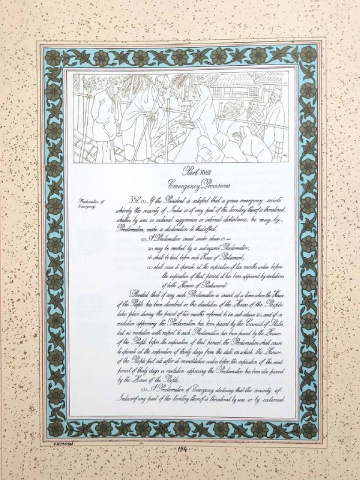 Part XVIII
Emergency Provisions
Proclamation of
Emergency.
352. (1) If the President is satisfied that a grave emergency exists
whereby the security of India or of any part of the territory thereof is threatened,
whether by war or external aggression or internal disturbance, he may, by
Proclamation, make a declaration to that effect.
(2) A Proclamation issued under clause (1) —
(a) may be revoked by a subsequent Proclamation;
(b) shall be laid before each House of Parliament;
(c) shall cease to operate at the expiration of two months unless before
the expiration of that period it has been approved by resolutions
of both Houses of Parliament:
Provided that if any such Proclamation is issued at a time when the House
of the People has been dissolved or the dissolution of the House of the People
takes place during the period of two months referred to in sub-clause (c), and if a
resolution approving the Proclamation has been passed by the Council of States,
but no resolution with respect to such Proclamation has been passed by the House
of the People before the expiration of that period, the Proclamation shall cease
to operate at the expiration of thirty days from the date on which the House
of the People first sits after its reconstitution unless before the expiration of the said
period of thirty days a resolution approving the Proclamation has been also passed
by the House of the People.
(3) A Proclamation of Emergency declaring that the security of
India or any part of the territory thereof is threatened by war or by external
154